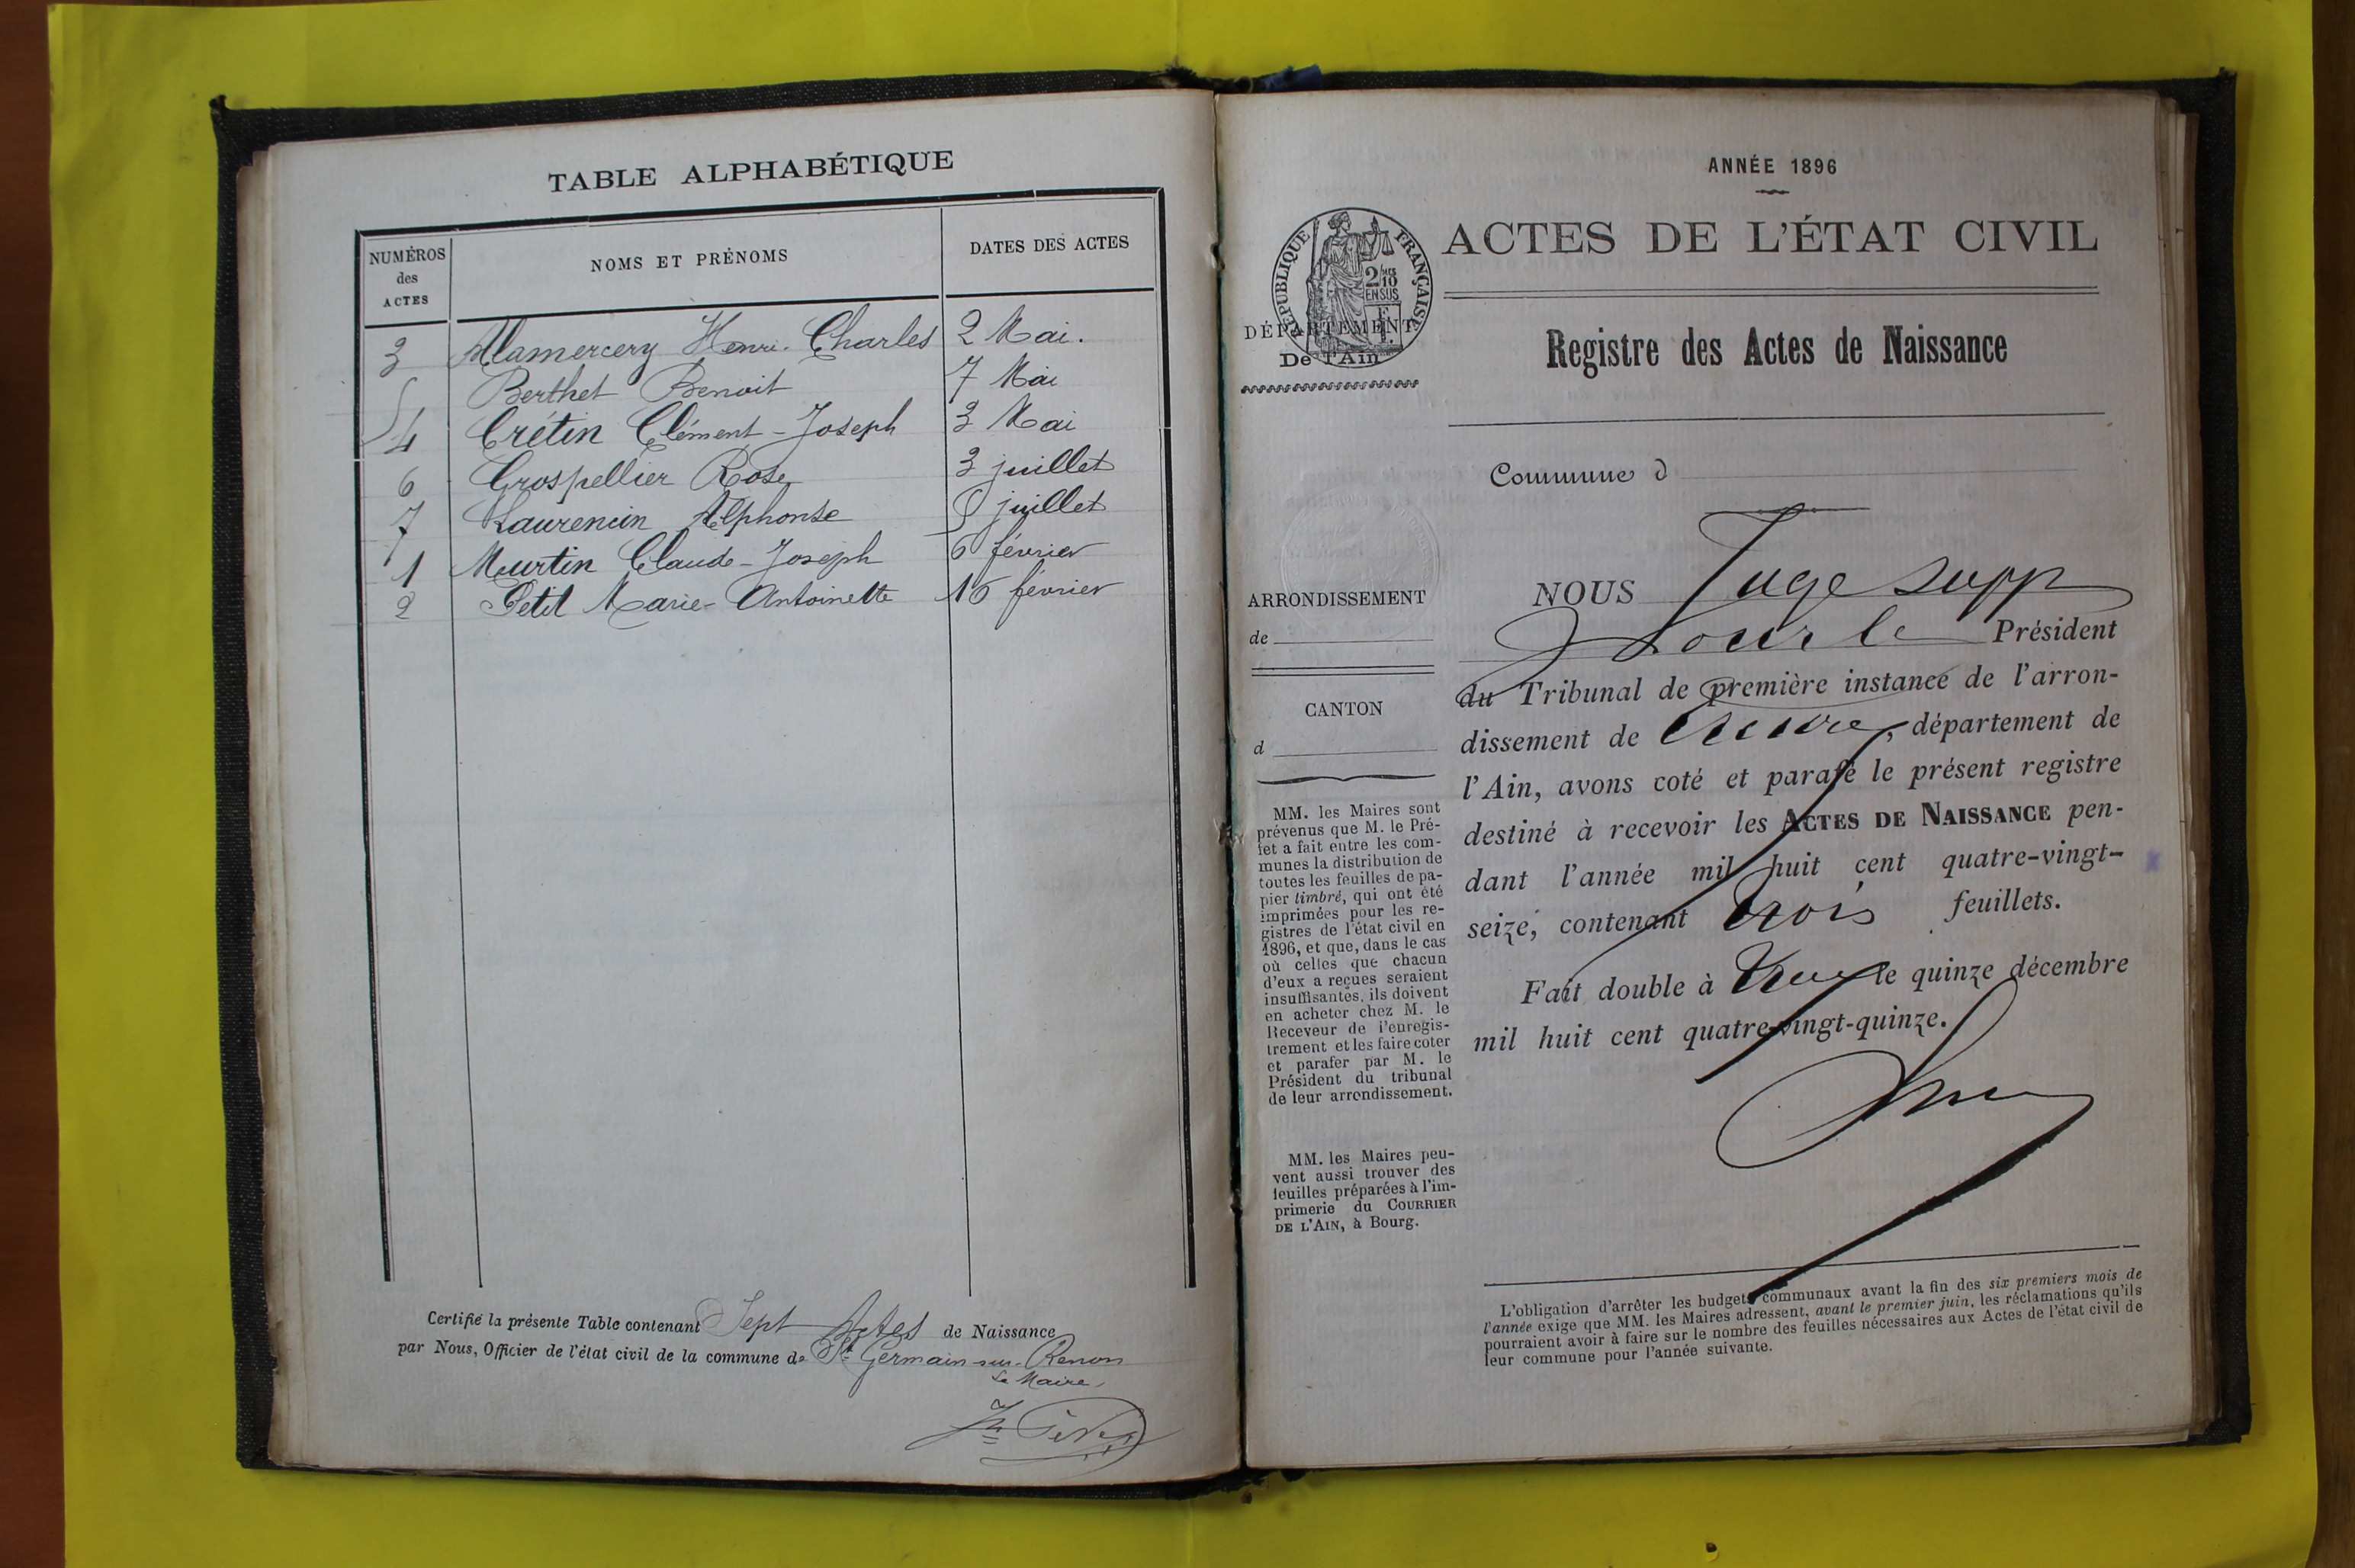 TABLE ALPHABÉTIQUE
NUMÉROS des ACTES NOMS ET PRÉNOMS DATES DES ACTES
3 Alamercery Henri-Charles 2 Mai.
5 Berthet Benoit 7 Mai
4 Crétin Clément-Joseph 3 Mai
6 Grospellier Rose 3 juillet
7 Laurencin Alphonse 5 juillet
1 Meurtin Claude-Joseph 6 février
2 Petit Marie-Antoinette 16 février
Certifié la présente Table contenant Sept Actes de Naissance
par Nous, Officier de l'état civil de la commune de St Germain-sur-Renon
Le Maire,
ANNÉE 1896
ACTES DE L'ÉTAT CIVIL
RÉPUBLIQUE FRANÇAISE
2/10 EN SUS
DÉPARTEMENT
De l'Ain
Registre des Actes de Naissance
Commune d
ARRONDISSEMENT
de
CANTON
d
MM. les Maires sont
prévenus que M. le Pré-
fet a fait entre les com-
munes la distribution de
toutes les feuilles de pa-
pier timbré, qui ont été
imprimées pour les re-
gistres de l'état civil en
1896, et que, dans le cas
où celles que chacun
d'eux a reçues seraient
insuffisantes, ils doivent
en acheter chez M. le
Receveur de l'enregis-
trement et les faire coter
et parafer par M. le
Président du tribunal
de leur arrondissement.
MM. les Maires peu-
vent aussi trouver des
feuilles préparées à l'im-
primerie du COURRIER
DE L'AIN, à Bourg.
NOUS Juge supp
pour le Président
du Tribunal de première instance de l'arron-
dissement de Trévoux, département de
l'Ain, avons coté et parafé le présent registre
destiné à recevoir les ACTES DE NAISSANCE pen-
dant l'année mil huit cent quatre-vingt-
seize, contenant trois feuillets.
Fait double à Trev le quinze décembre
mil huit cent quatre-vingt-quinze.
L'obligation d'arrêter les budgets communaux avant la fin des six premiers mois de
l'année exige que MM. les Maires adressent, avant le premier juin, les réclamations qu'ils
pourraient avoir à faire sur le nombre des feuilles nécessaires aux Actes de l'état civil de
leur commune pour l'année suivante.